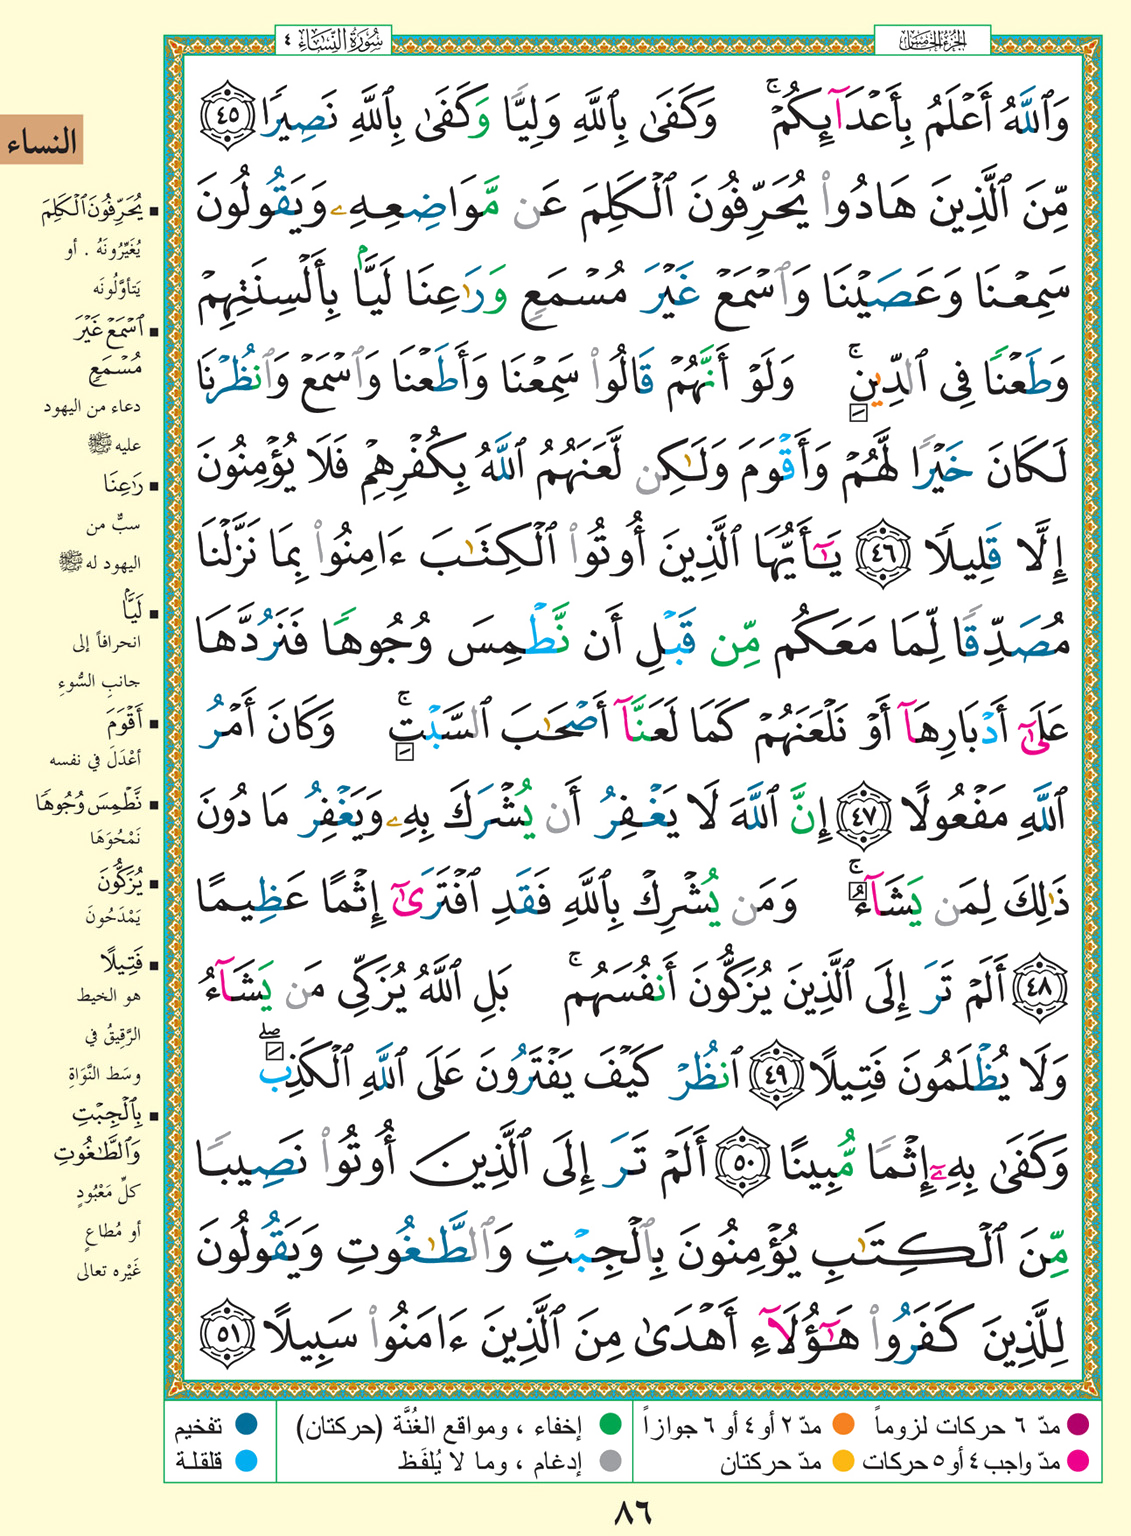 سُورَةُ النِّسَاءِ ٤
الجزء الخامس
وَٱللَّهُ أَعۡلَمُ بِأَعۡدَآئِكُمۡۚ وَكَفَىٰ بِٱللَّهِ وَلِيّٗا وَكَفَىٰ بِٱللَّهِ نَصِيرٗا ٤٥
مِّنَ ٱلَّذِينَ هَادُواْ يُحَرِّفُونَ ٱلۡكَلِمَ عَن مَّوَاضِعِهِۦ وَيَقُولُونَ
سَمِعۡنَا وَعَصَيۡنَا وَٱسۡمَعۡ غَيۡرَ مُسۡمَعٖ وَرَٰعِنَا لَيَّۢا بِأَلۡسِنَتِهِمۡ
وَطَعۡنٗا فِي ٱلدِّينِۚ وَلَوۡ أَنَّهُمۡ قَالُواْ سَمِعۡنَا وَأَطَعۡنَا وَٱسۡمَعۡ وَٱنظُرۡنَا
لَكَانَ خَيۡرٗا لَّهُمۡ وَأَقۡوَمَ وَلَٰكِن لَّعَنَهُمُ ٱللَّهُ بِكُفۡرِهِمۡ فَلَا يُؤۡمِنُونَ
إِلَّا قَلِيلٗا ٤٦ يَٰٓأَيُّهَا ٱلَّذِينَ أُوتُواْ ٱلۡكِتَٰبَ ءَامِنُواْ بِمَا نَزَّلۡنَا
مُصَدِّقٗا لِّمَا مَعَكُم مِّن قَبۡلِ أَن نَّطۡمِسَ وُجُوهٗا فَنَرُدَّهَا
عَلَىٰٓ أَدۡبَارِهَآ أَوۡ نَلۡعَنَهُمۡ كَمَا لَعَنَّآ أَصۡحَٰبَ ٱلسَّبۡتِۚ وَكَانَ أَمۡرُ
ٱللَّهِ مَفۡعُولًا ٤٧ إِنَّ ٱللَّهَ لَا يَغۡفِرُ أَن يُشۡرَكَ بِهِۦ وَيَغۡفِرُ مَا دُونَ
ذَٰلِكَ لِمَن يَشَآءُۚ وَمَن يُشۡرِكۡ بِٱللَّهِ فَقَدِ ٱفۡتَرَىٰٓ إِثۡمًا عَظِيمًا
٤٨ أَلَمۡ تَرَ إِلَى ٱلَّذِينَ يُزَكُّونَ أَنفُسَهُمۚ بَلِ ٱللَّهُ يُزَكِّي مَن يَشَآءُ
وَلَا يُظۡلَمُونَ فَتِيلًا ٤٩ ٱنظُرۡ كَيۡفَ يَفۡتَرُونَ عَلَى ٱللَّهِ ٱلۡكَذِبَۖ
وَكَفَىٰ بِهِۦٓ إِثۡمٗا مُّبِينًا ٥٠ أَلَمۡ تَرَ إِلَى ٱلَّذِينَ أُوتُواْ نَصِيبٗا
مِّنَ ٱلۡكِتَٰبِ يُؤۡمِنُونَ بِٱلۡجِبۡتِ وَٱلطَّٰغُوتِ وَيَقُولُونَ
لِلَّذِينَ كَفَرُواْ هَٰٓؤُلَآءِ أَهۡدَىٰ مِنَ ٱلَّذِينَ ءَامَنُواْ سَبِيلًا ٥١
النساء
يُحَرِّفُونَ ٱلۡكَلِمَ
يُغَيِّرُونَهُ . أو
يَتأوَّلُونَه
ٱسۡمَعۡ غَيۡرَ
مُسۡمَعٍ
دعاء من اليهود
عليه ﷺ
رَٰعِنَا
سبٌّ من
اليهود له ﷺ
لَيَّۢا
انحرافاً إلى
جانبِ السُّوءِ
أَقۡوَمَ
أعْدَلَ في نفسه
نَّطۡمِسَ وُجُوهٗا
نَمْحُوَهَا
يُزَكُّونَ
يَمْدَحُونَ
فَتِيلًا
هو الخيط
الرَّقِيقُ في
وسَط النَّوَاةِ
بِٱلۡجِبۡتِ
وَٱلطَّٰغُوتِ
كلِّ مَعْبُودٍ
أو مُطاعٍ
غَيْره تعالى
مدّ ٦ حركات لزوماً
مدّ ٢ أو ٤ أو ٦ جوازاً
إخفاء ، ومواقع الغُنَّة (حركتان)
تفخيم
مدّ واجب ٤ أو ٥ حركات
مدّ حركتان
إدغام ، وما لا يُلفَظ
قلقلة
٨٦